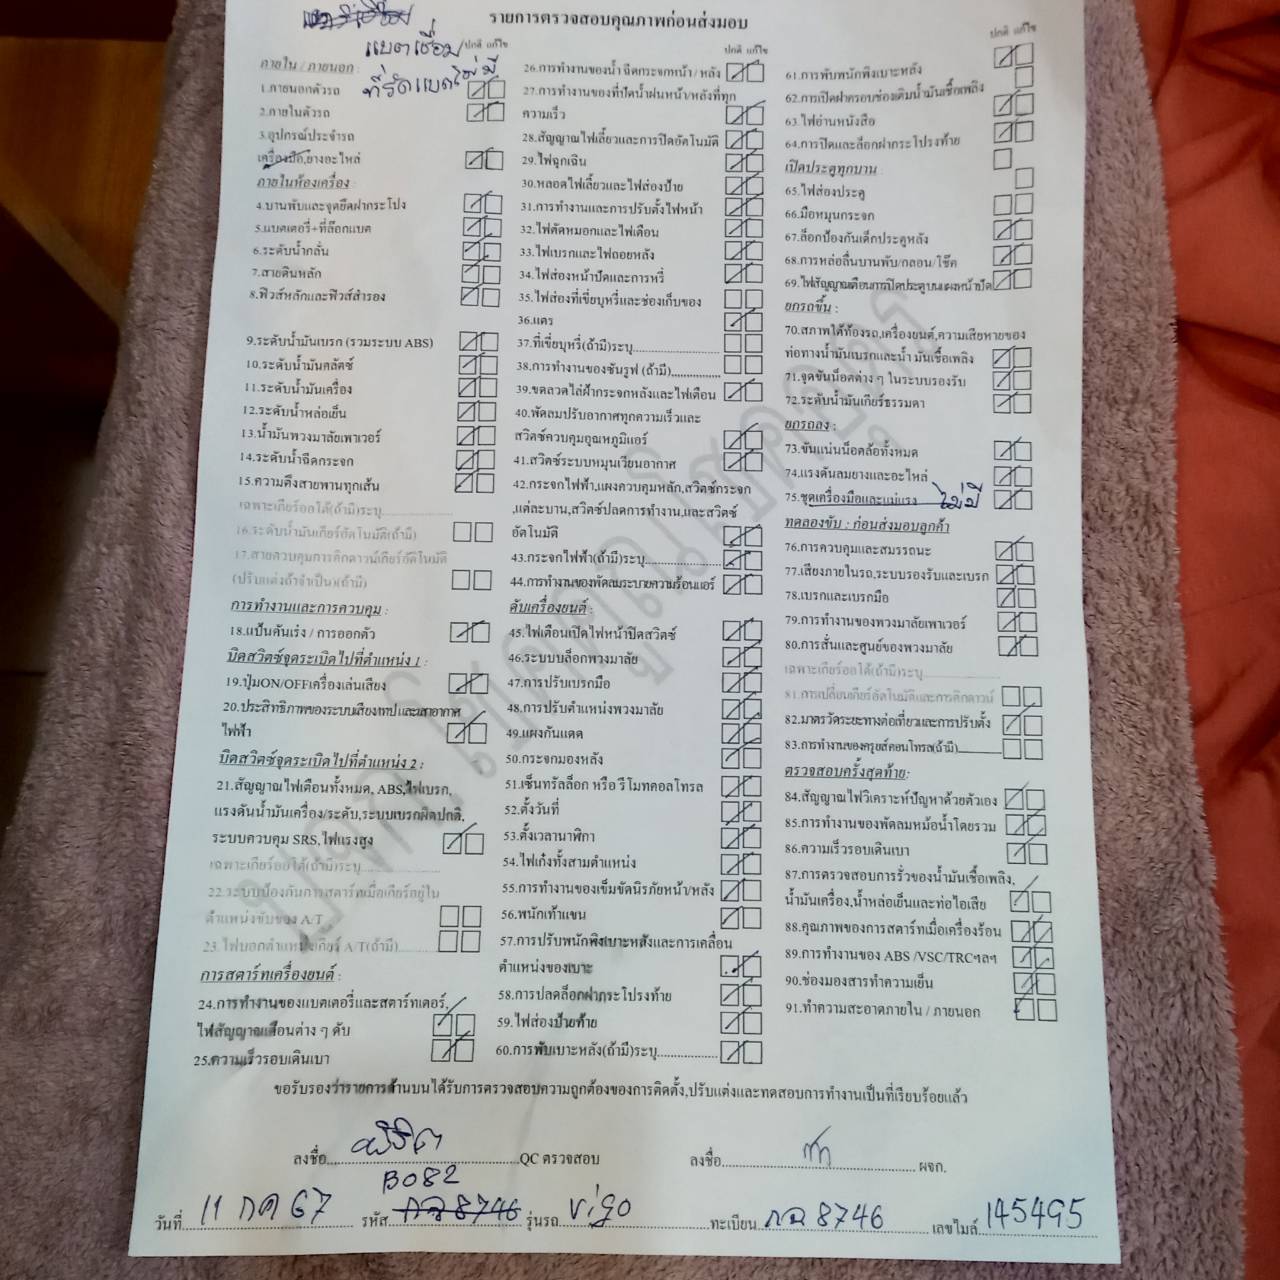 รายการตรวจสอบคุณภาพก่อนส่งมอบ
แบตเชื่อม
ที่รัดแบตไม่มี
ปกติ แก้ไข
ภายใน / ภายนอก :
1.ภายนอกตัวรถ
2.ภายในตัวรถ
3.อุปกรณ์ประจำรถ
เครื่องมือ,ยางอะไหล่
ภายในห้องเครื่อง :
4.บานพับและจุดยึดฝากระโปรง
5.แบตเตอรี่+ที่ล๊อกแบต
6.ระดับน้ำกลั่น
7.สายดินหลัก
8.ฟิวส์หลักและฟิวส์สำรอง
9.ระดับน้ำมันเบรก (รวมระบบ ABS)
10.ระดับน้ำมันคลัตช์
11.ระดับน้ำมันเครื่อง
12.ระดับน้ำหล่อเย็น
13.น้ำมันพวงมาลัยเพาเวอร์
14.ระดับน้ำฉีดกระจก
15.ความตึงสายพานทุกเส้น
เฉพาะเกียร์ออโต้(ถ้ามี)ระบุ
16.ระดับน้ำมันเกียร์อัตโนมัติ(ถ้ามี)
17.สายควบคุมการคิกดาวน์เกียร์อัตโนมัติ
(ปรับแต่งถ้าจำเป็น)(ถ้ามี)
การทำงานและการควบคุม :
18.แป้นคันเร่ง / การออกตัว
บิดสวิตซ์จุดระเบิดไปที่ตำแหน่ง 1 :
19.ปุ่มON/OFFเครื่องเล่นเสียง
20.ประสิทธิภาพของระบบเสียงเทปและเสาอากาศ
ไฟฟ้า
บิดสวิตซ์จุดระเบิดไปที่ตำแหน่ง 2 :
21.สัญญาณไฟเตือนทั้งหมด, ABS,ไฟเบรก,
แรงดันน้ำมันเครื่อง/ระดับ,ระบบเบรกผิดปกติ,
ระบบควบคุม SRS,ไฟแรงสูง
เฉพาะเกียร์ออโต้(ถ้ามี)ระบุ
22.ระบบป้องกันการสตาร์ทเมื่อเกียร์อยู่ใน
ตำแหน่งขับของ A/T
23.ไฟบอกตำแหน่งเกียร์ A/T(ถ้ามี)
การสตาร์ทเครื่องยนต์ :
24.การทำงานของแบตเตอรี่และสตาร์ทเตอร์,
ไฟสัญญาณเตือนต่าง ๆ ดับ
25.ความเร็วรอบเดินเบา
ปกติ แก้ไข
26.การทำงานของน้ำ ฉีดกระจกหน้า / หลัง
27.การทำงานของที่ปัดน้ำฝนหน้า/หลังที่ทุก
ความเร็ว
28.สัญญาณไฟเลี้ยวและการปิดอัตโนมัติ
29.ไฟฉุกเฉิน
30.หลอดไฟเลี้ยวและไฟส่องป้าย
31.การทำงานและการปรับตั้งไฟหน้า
32.ไฟตัดหมอกและไฟเตือน
33.ไฟเบรกและไฟถอยหลัง
34.ไฟส่องหน้าปัดและการหรี่
35.ไฟส่องที่เขี่ยบุหรี่และช่องเก็บของ
36.แตร
37.ที่เขี่ยบุหรี่(ถ้ามี)ระบุ
38.การทำงานของซันรูฟ (ถ้ามี)
39.ขดลวดไล่ฝ้ากระจกหลังและไฟเตือน
40.พัดลมปรับอากาศทุกความเร็วและ
สวิตช์ควบคุมอุณหภูมิแอร์
41.สวิตซ์ระบบหมุนเวียนอากาศ
42.กระจกไฟฟ้า,แผงควบคุมหลัก,สวิตซ์กระจก
,แต่ละบาน,สวิตซ์ปลดการทำงาน,และสวิตซ์
อัตโนมัติ
43.กระจกไฟฟ้า(ถ้ามี)ระบุ
44.การทำงานของพัดลมระบายความร้อนแอร์
ดับเครื่องยนต์ :
45.ไฟเตือนเปิดไฟหน้าปิดสวิตซ์
46.ระบบบล็อกพวงมาลัย
47.การปรับเบรกมือ
48.การปรับตำแหน่งพวงมาลัย
49.แผงกันแดด
50.กระจกมองหลัง
51.เซ็นทรัลล็อก หรือ รีโมทคอลโทรล
52.ตั้งวันที่
53.ตั้งเวลานาฬิกา
54.ไฟเก๋งทั้งสามตำแหน่ง
55.การทำงานของเข็มขัดนิรภัยหน้า/หลัง
56.พนักเท้าแขน
57.การปรับพนักพิงเบาะหลังและการเคลื่อน
ตำแหน่งของเบาะ
58.การปลดล็อกฝากระโปรงท้าย
59.ไฟส่องป้ายท้าย
60.การพับเบาะหลัง(ถ้ามี)ระบุ
ปกติ แก้ไข
61.การพับพนักพิงเบาะหลัง
62.การเปิดฝาครอบช่องเติมน้ำมันเชื้อเพลิง
63.ไฟอ่านหนังสือ
64.การปิดและล็อกฝากระโปรงท้าย
เปิดประตูทุกบาน
65.ไฟส่องประตู
66.มือหมุนกระจก
67.ล็อกป้องกันเด็กประตูหลัง
68.การหล่อลื่นบานพับ/กลอน/โช๊ค
69.ไฟสัญญาณเตือนการปิดประตูบนแผงหน้าปัด
ยกรถขึ้น :
70.สภาพใต้ท้องรถ,เครื่องยนต์,ความเสียหายของ
ท่อทางน้ำมันเบรกและน้ำ มันเชื้อเพลิง
71.จุดขันน็อตต่าง ๆ ในระบบรองรับ
72.ระดับน้ำมันเกียร์ธรรมดา
ยกรถลง :
73.ขันแน่นน็อตล้อทั้งหมด
74.แรงดันลมยางและอะไหล่
75.ชุดเครื่องมือและแม่แรง ไม่มี
ทดลองขับ : ก่อนส่งมอบลูกค้า
76.การควบคุมและสมรรถนะ
77.เสียงภายในรถ,ระบบรองรับและเบรก
78.เบรกและเบรกมือ
79.การทำงานของพวงมาลัยเพาเวอร์
80.การสั่นและศูนย์ของพวงมาลัย
เฉพาะเกียร์ออโต้(ถ้ามี)ระบุ
81.การเปลี่ยนเกียร์อัตโนมัติและการคิกดาวน์
82.มาตรวัดระยะทางต่อเที่ยวและการปรับตั้ง
83.การทำงานของครูยส์คอนโทรล(ถ้ามี)
ตรวจสอบครั้งสุดท้าย:
84.สัญญาณไฟวิเคราะห์ปัญหาด้วยตัวเอง
85.การทำงานของพัดลมหม้อน้ำโดยรวม
86.ความเร็วรอบเดินเบา
87.การตรวจสอบการรั่วของน้ำมันเชื้อเพลิง,
น้ำมันเครื่อง,น้ำหล่อเย็นและท่อไอเสีย
88.คุณภาพของการสตาร์ทเมื่อเครื่องร้อน
89.การทำงานของ ABS /VSC/TRCฯลฯ
90.ช่องมองสารทำความเย็น
91.ทำความสะอาดภายใน / ภายนอก
ขอรับรองว่ารายการด้านบนได้รับการตรวจสอบความถูกต้องของการติดตั้ง,ปรับแต่งและทดสอบการทำงานเป็นที่เรียบร้อยแล้ว
ลงชื่อ QC ตรวจสอบ ลงชื่อ ผจก.
B082
วันที่ 11 กค 67 รหัส กฉ 8746 รุ่นรถ vigo ทะเบียน กฉ 8746 เลขไมล์ 145495